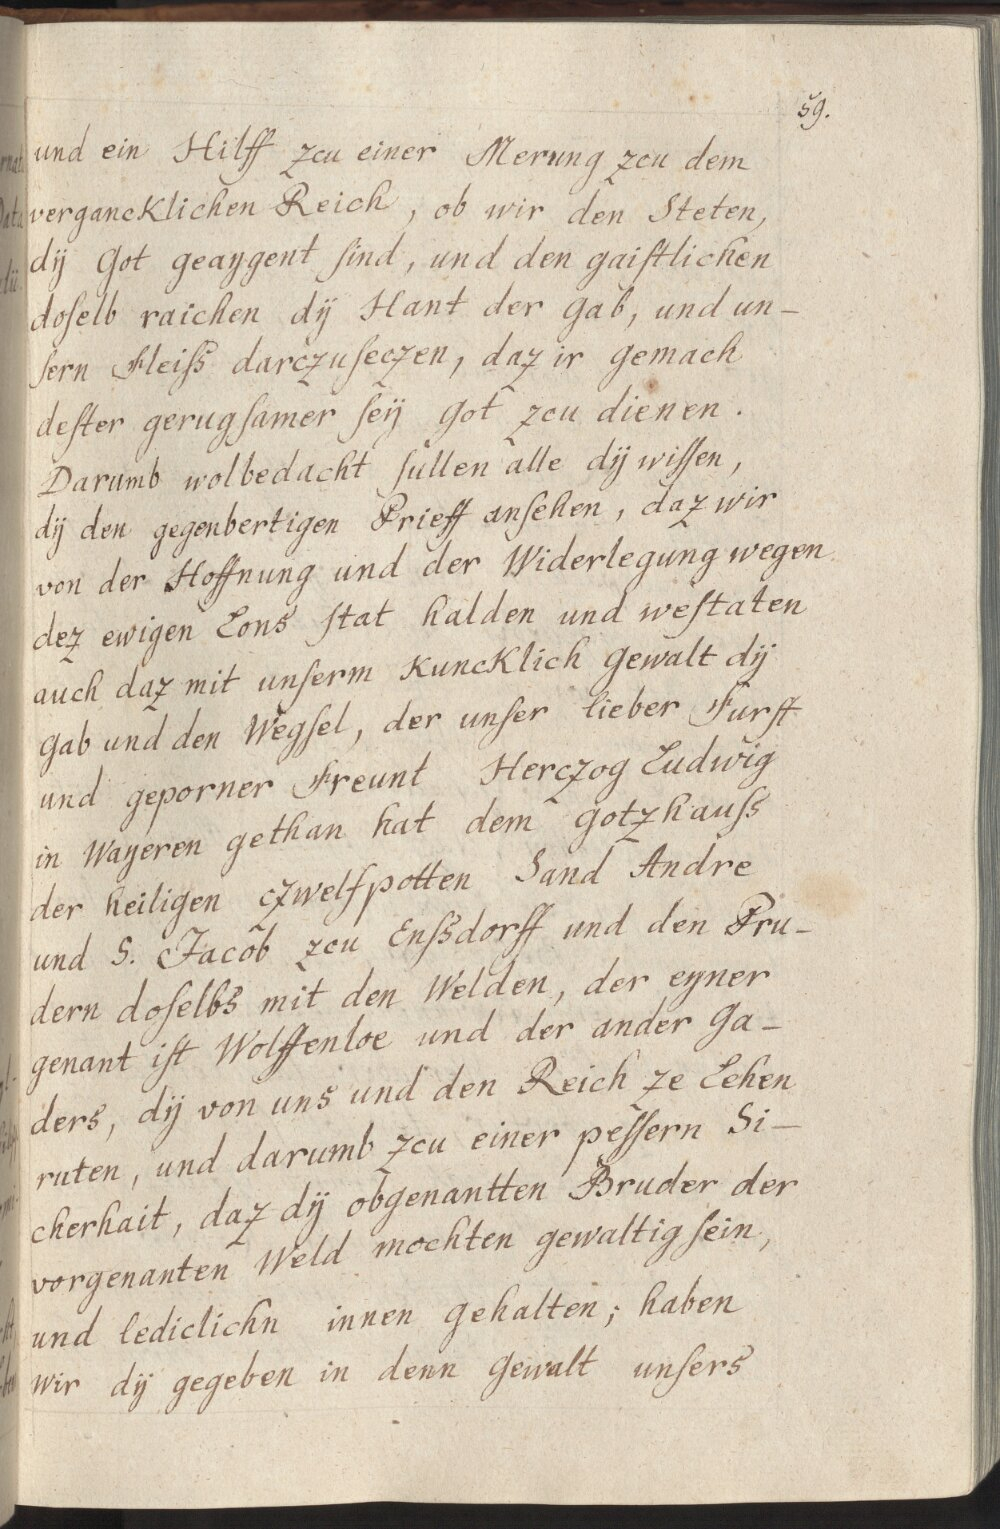 59.
und ein Hilff zcu einer Merung zcu dem
vergancklichen Reich, ob wir den Steten,
dÿ Got geaygent sind, und den gaistlichen
doselb raichen dÿ Hant der Gab, und un-
sern Fleiss darczuseczen, daz ir gemach
dester gerugsamer seÿ Got zcu dienen.
Darumb wolbedacht sullen alle dÿ wissen,
dÿ den gegenbertigen Prieff ansehen, daz wir
von der Hoffnung und der Widerlegung wegen
dez ewigen Lons stat halden und westaten
auch daz mit unserm Kuncklich gewalt dÿ
Gab und den Wegsel, der unser lieber Furst
und geporner Freunt Herczog Ludwig
in Wayeren gethan hat dem gotzhauss
der heiligen czwelfpotten Sand Andre
und S. Jacob zcu Enssdorff und den Pru-
dern doselbs mit den Welden, der eyner
genant ist Wolffenloe und der ander Ga-
ders, dÿ von uns und den Reich ze Lehen
ruten, und darumb zcu einer pessern Si-
cherhait, daz dÿ obgenantten Bruder der
vorgenanten Weld mochten gewaltig sein,
und lediclichn innen gehalten; haben
wir dÿ gegeben in denn Gewalt unsers